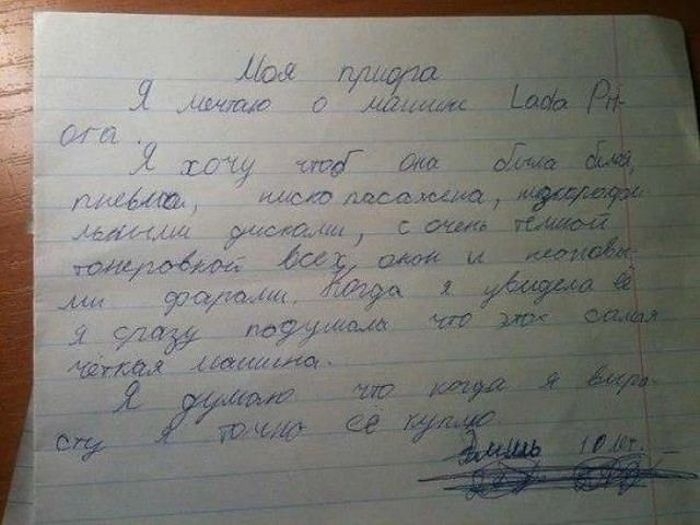 Моя приора
Я мечтаю о машине Lada Pri-
ora.
Я хочу чтоб она была белая,
пневмо, ниско пасажена,
льными дисками, с очень тёмной
тонеровкой всех окон и неоновы-
ми фарами. Когда я увидела её
я сразу подумала что это самая
чёткая машина.
Я думаю что когда я выра-
сту я точно её куплю.
Эмиль 10 лет.